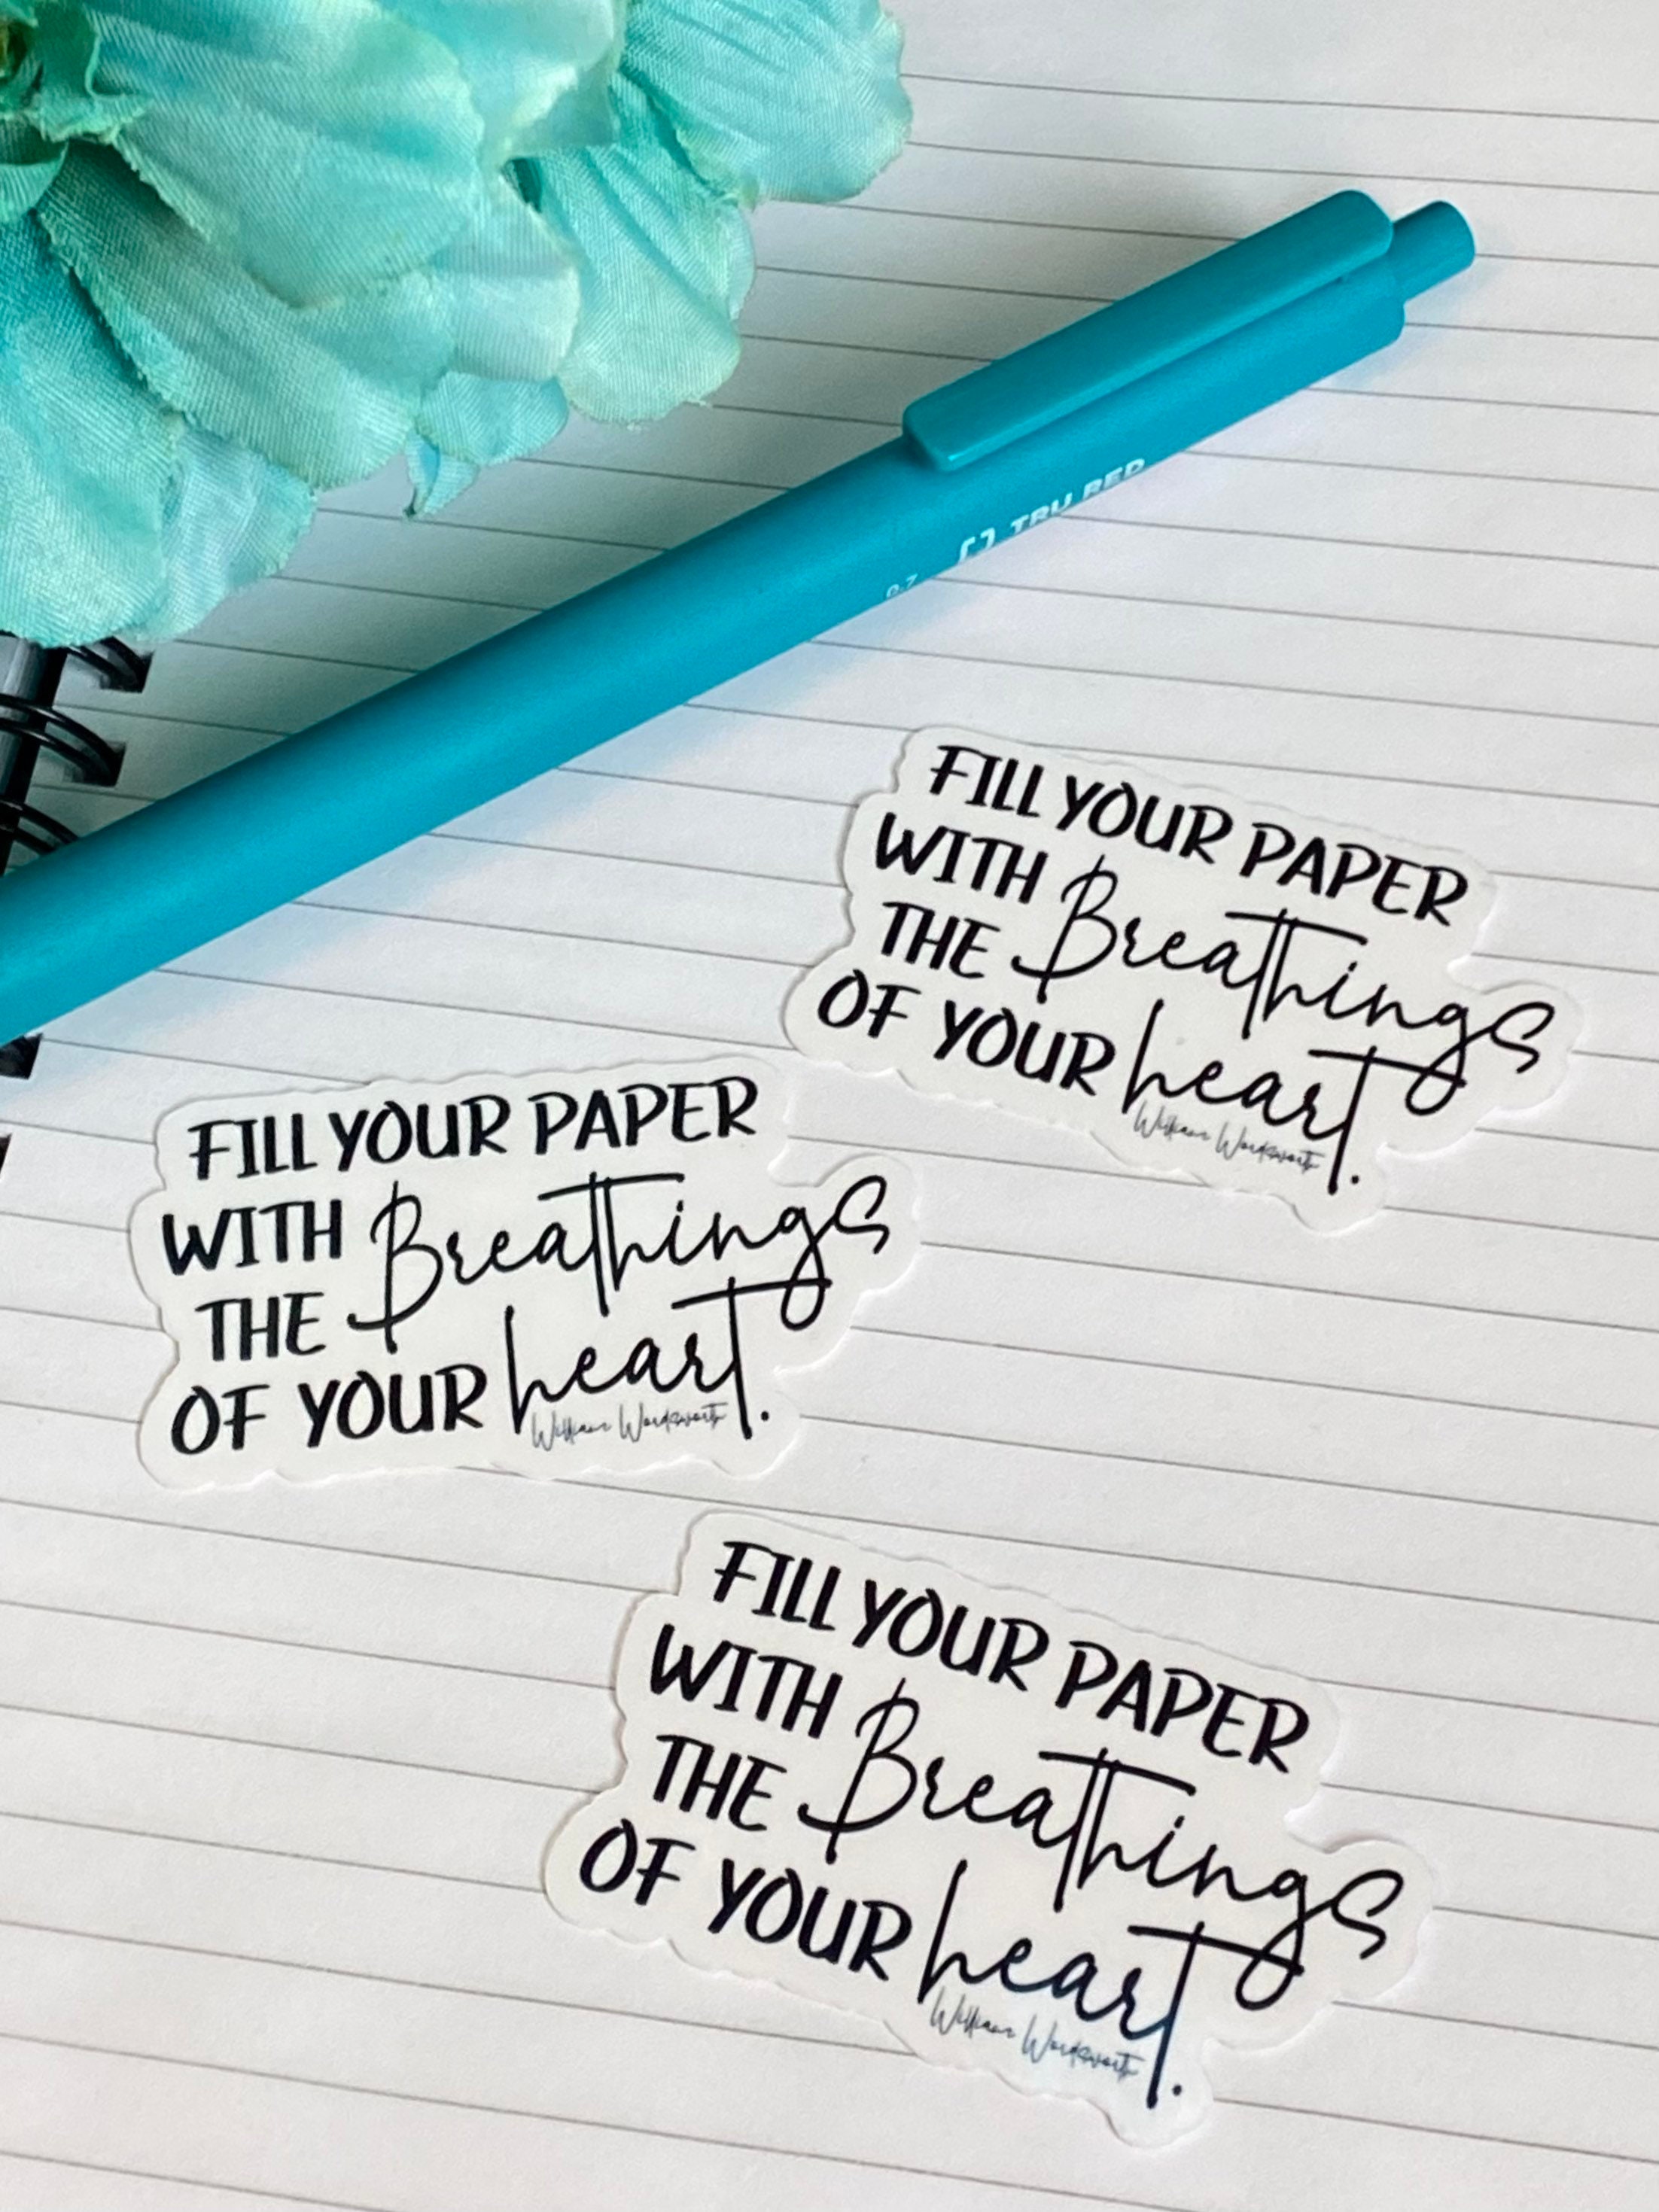 TRU RED
0.7
FILL YOUR PAPER
WITH Breathings
THE
OF YOUR heart.
William Wordsworth
FILL YOUR PAPER
WITH Breathings
THE
OF YOUR heart.
William Wordsworth
FILL YOUR PAPER
WITH Breathings
THE
OF YOUR heart.
William Wordsworth